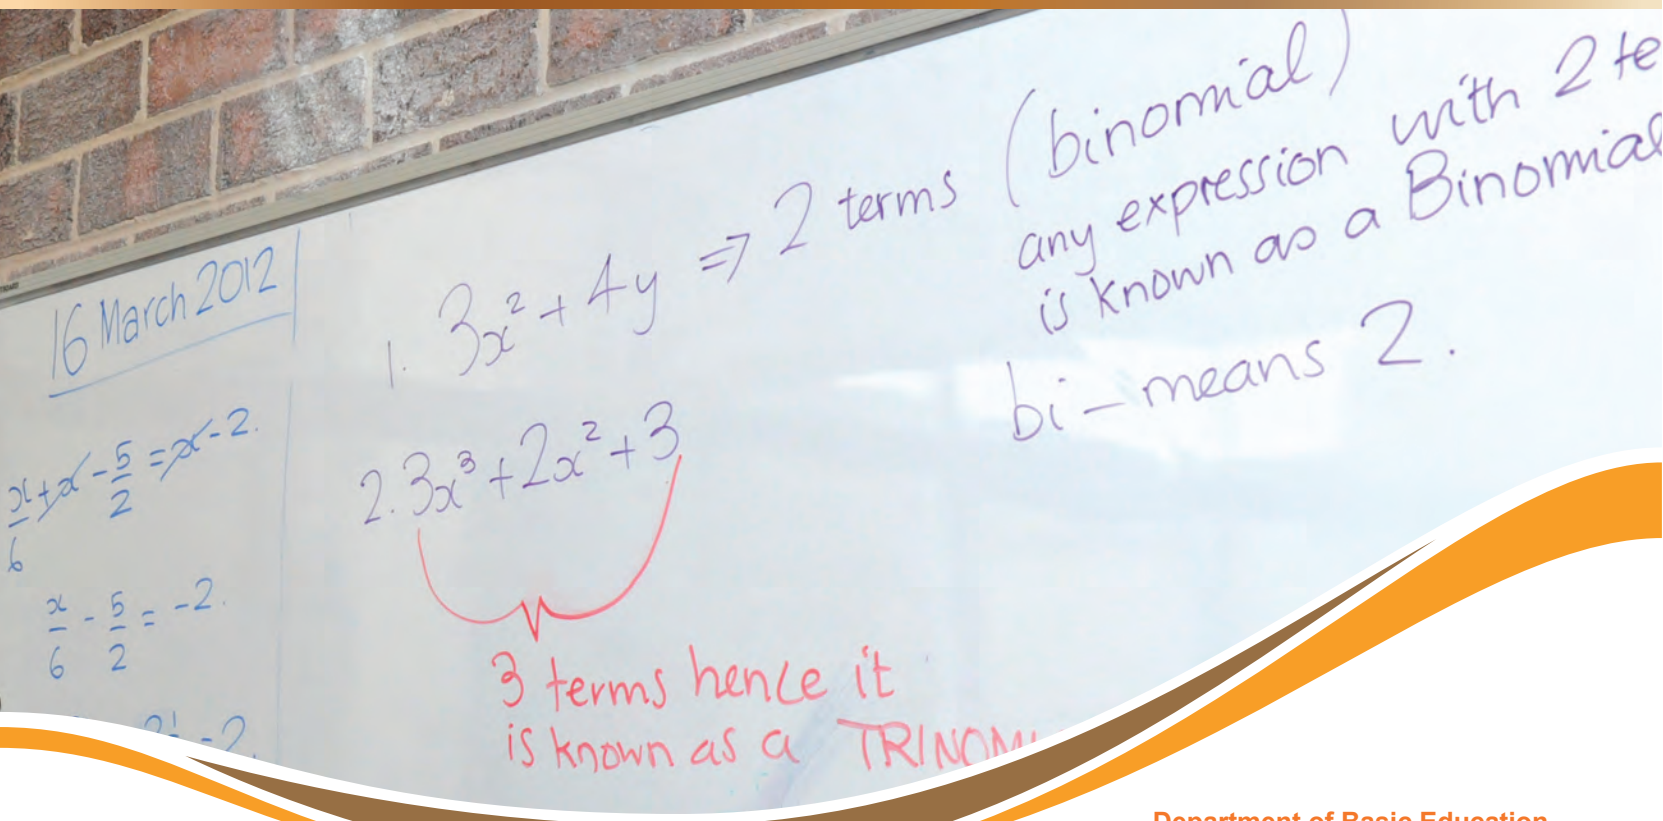 16 March 2012
x/6 + x - 5/2 = x - 2.
x/6 - 5/2 = -2.
- 2.
1. 3x² + 4y ⇒ 2 terms (binomial)
any expression with 2 te
is known as a Binomial
bi - means 2.
2. 3x³ + 2x² + 3
3 terms hence it
is known as a TRINOM
Department of Basic Education